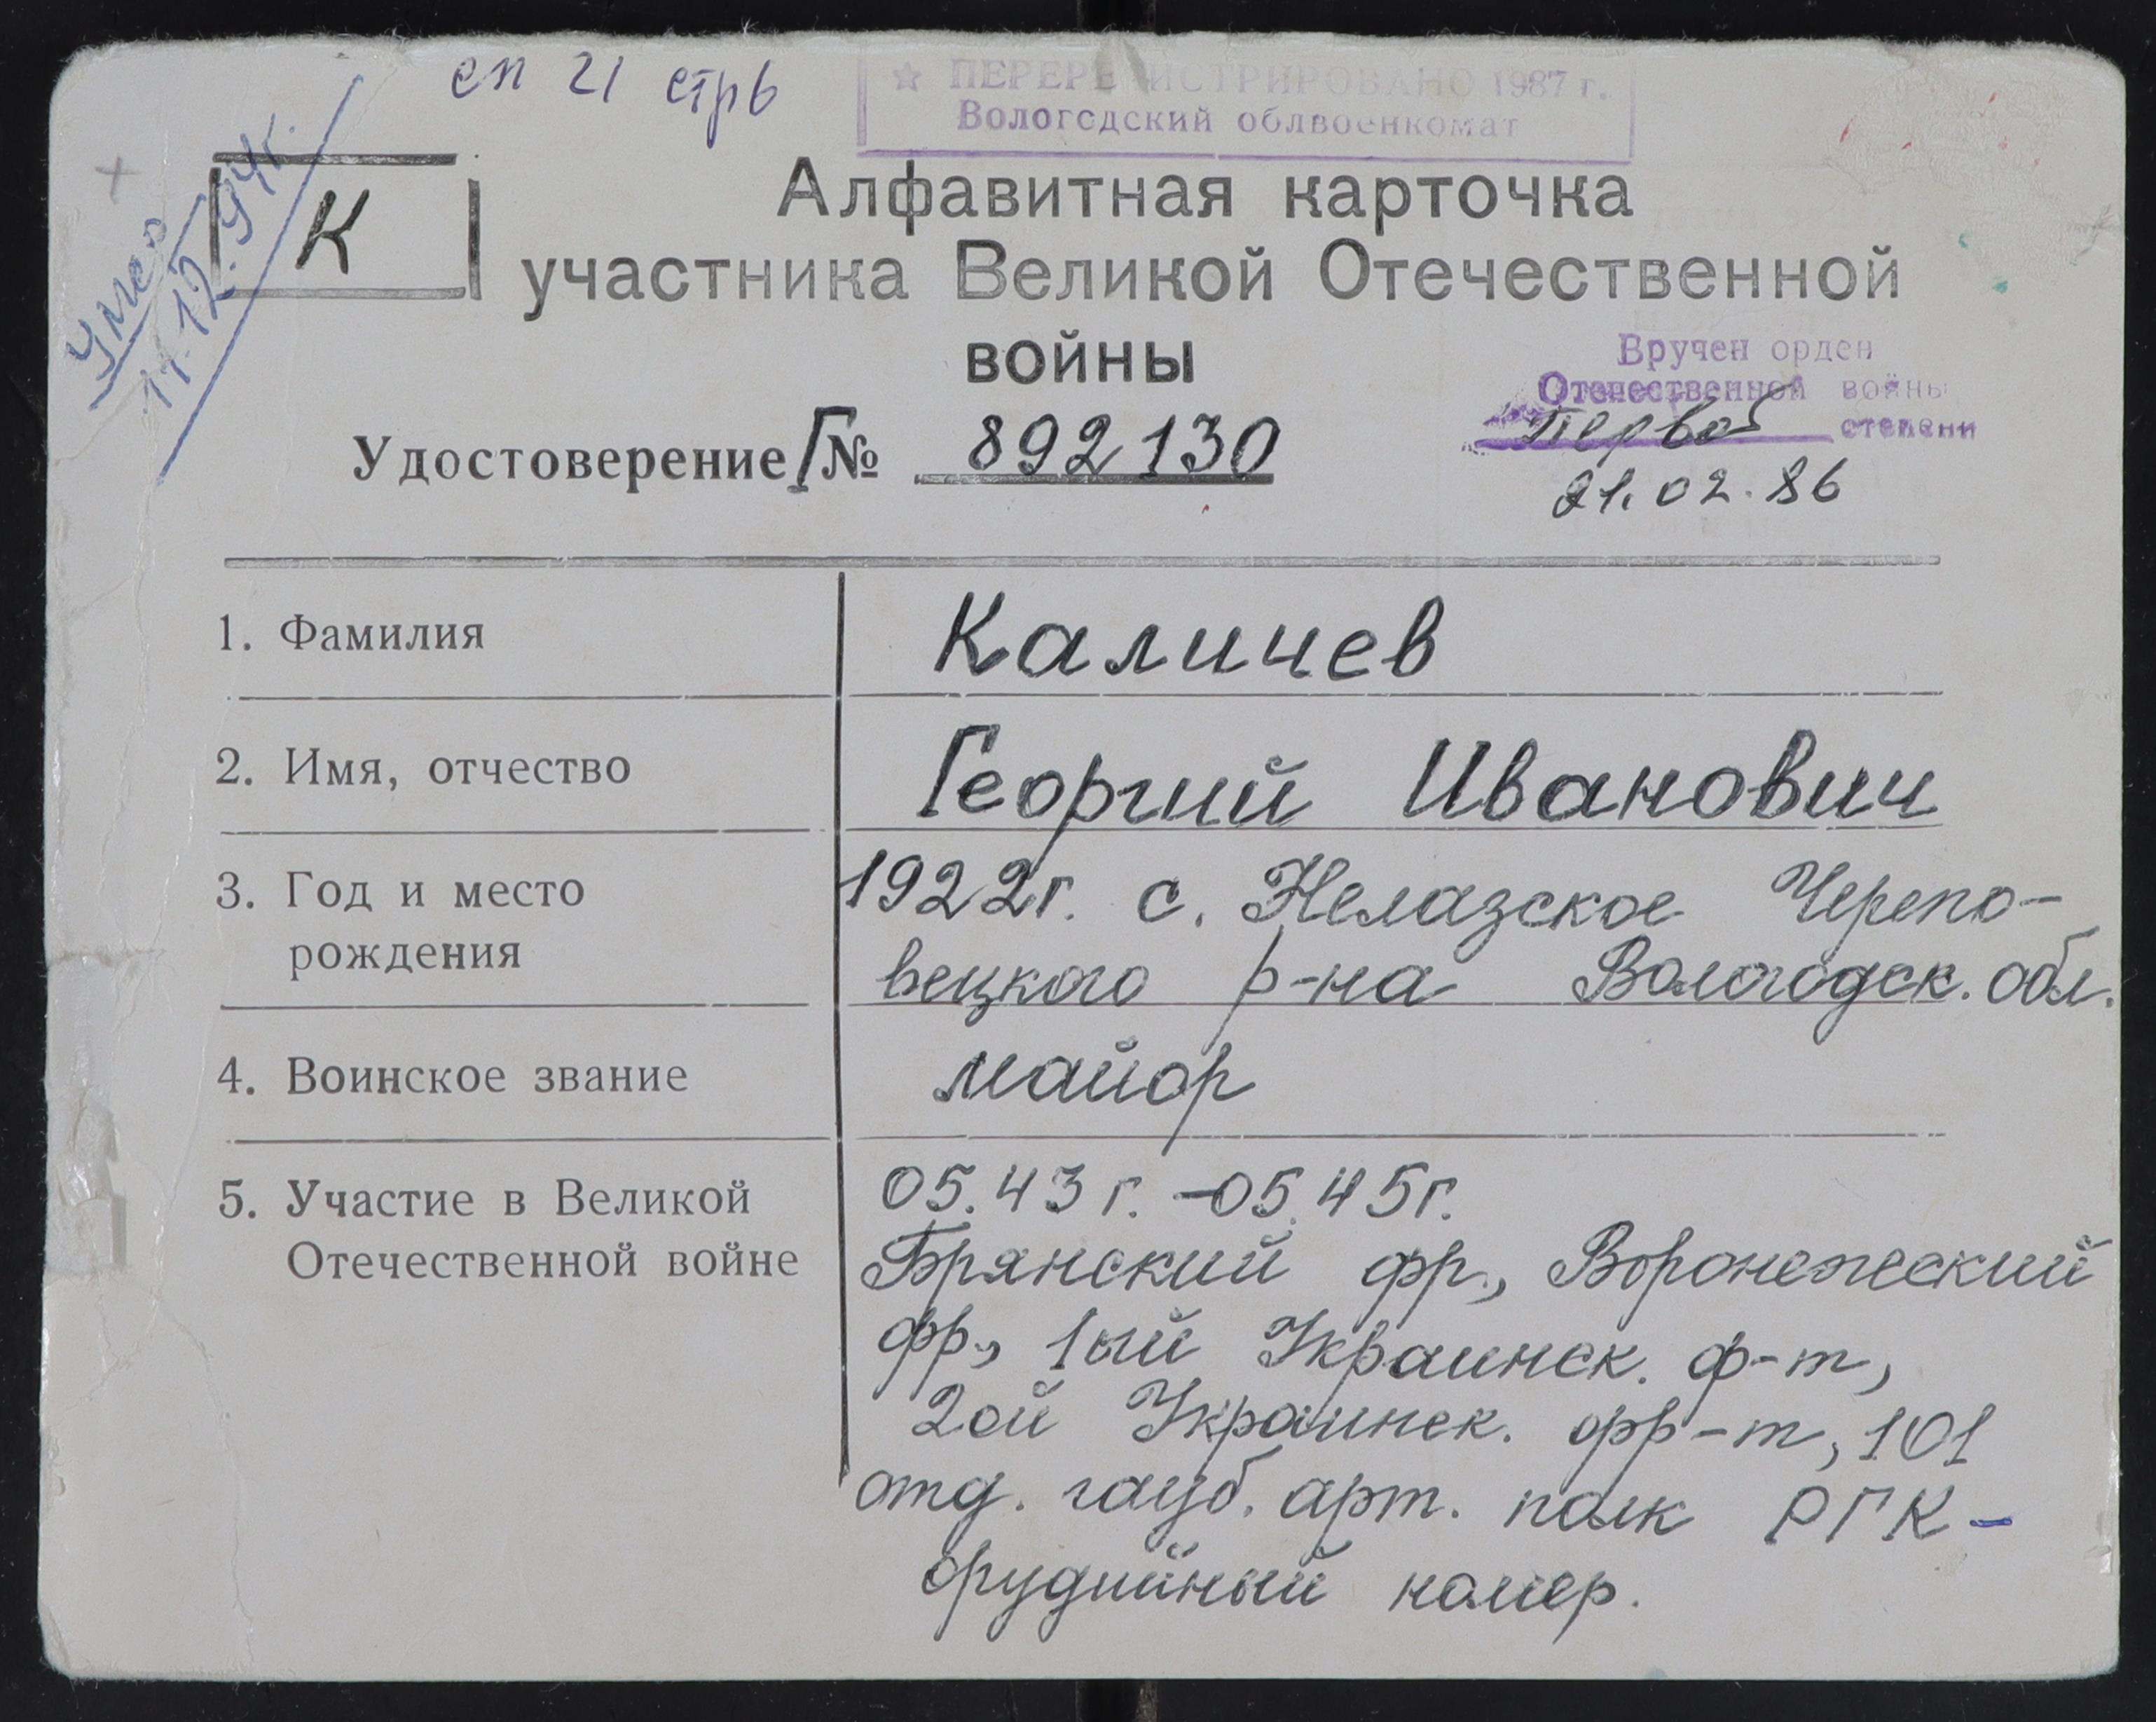 сп 21 стрь
☆ ПЕРЕРЕГИСТРИРОВАНО 1987 г.
Вологодский облвоенкомат
11.12.94г.
К
Алфавитная карточка
участника Великой Отечественной
войны
Вручен орден
Отечественной войны
первой степени
21.02.86
Удостоверение Г№ 892130
1. Фамилия
Каличев
2. Имя, отчество
Георгий Иванович
3. Год и место
рождения
1922г. с. Нелазское Черепо-
вецкого р-на Вологодск. обл.
4. Воинское звание
майор
5. Участие в Великой
Отечественной войне
05.43г. - 05.45г.
Брянский фр., Воронежский
фр., 1ый Украинск. ф-т,
2ой Украинск. фр-т, 101
отд. гауб. арт. полк РГК -
орудийный номер.